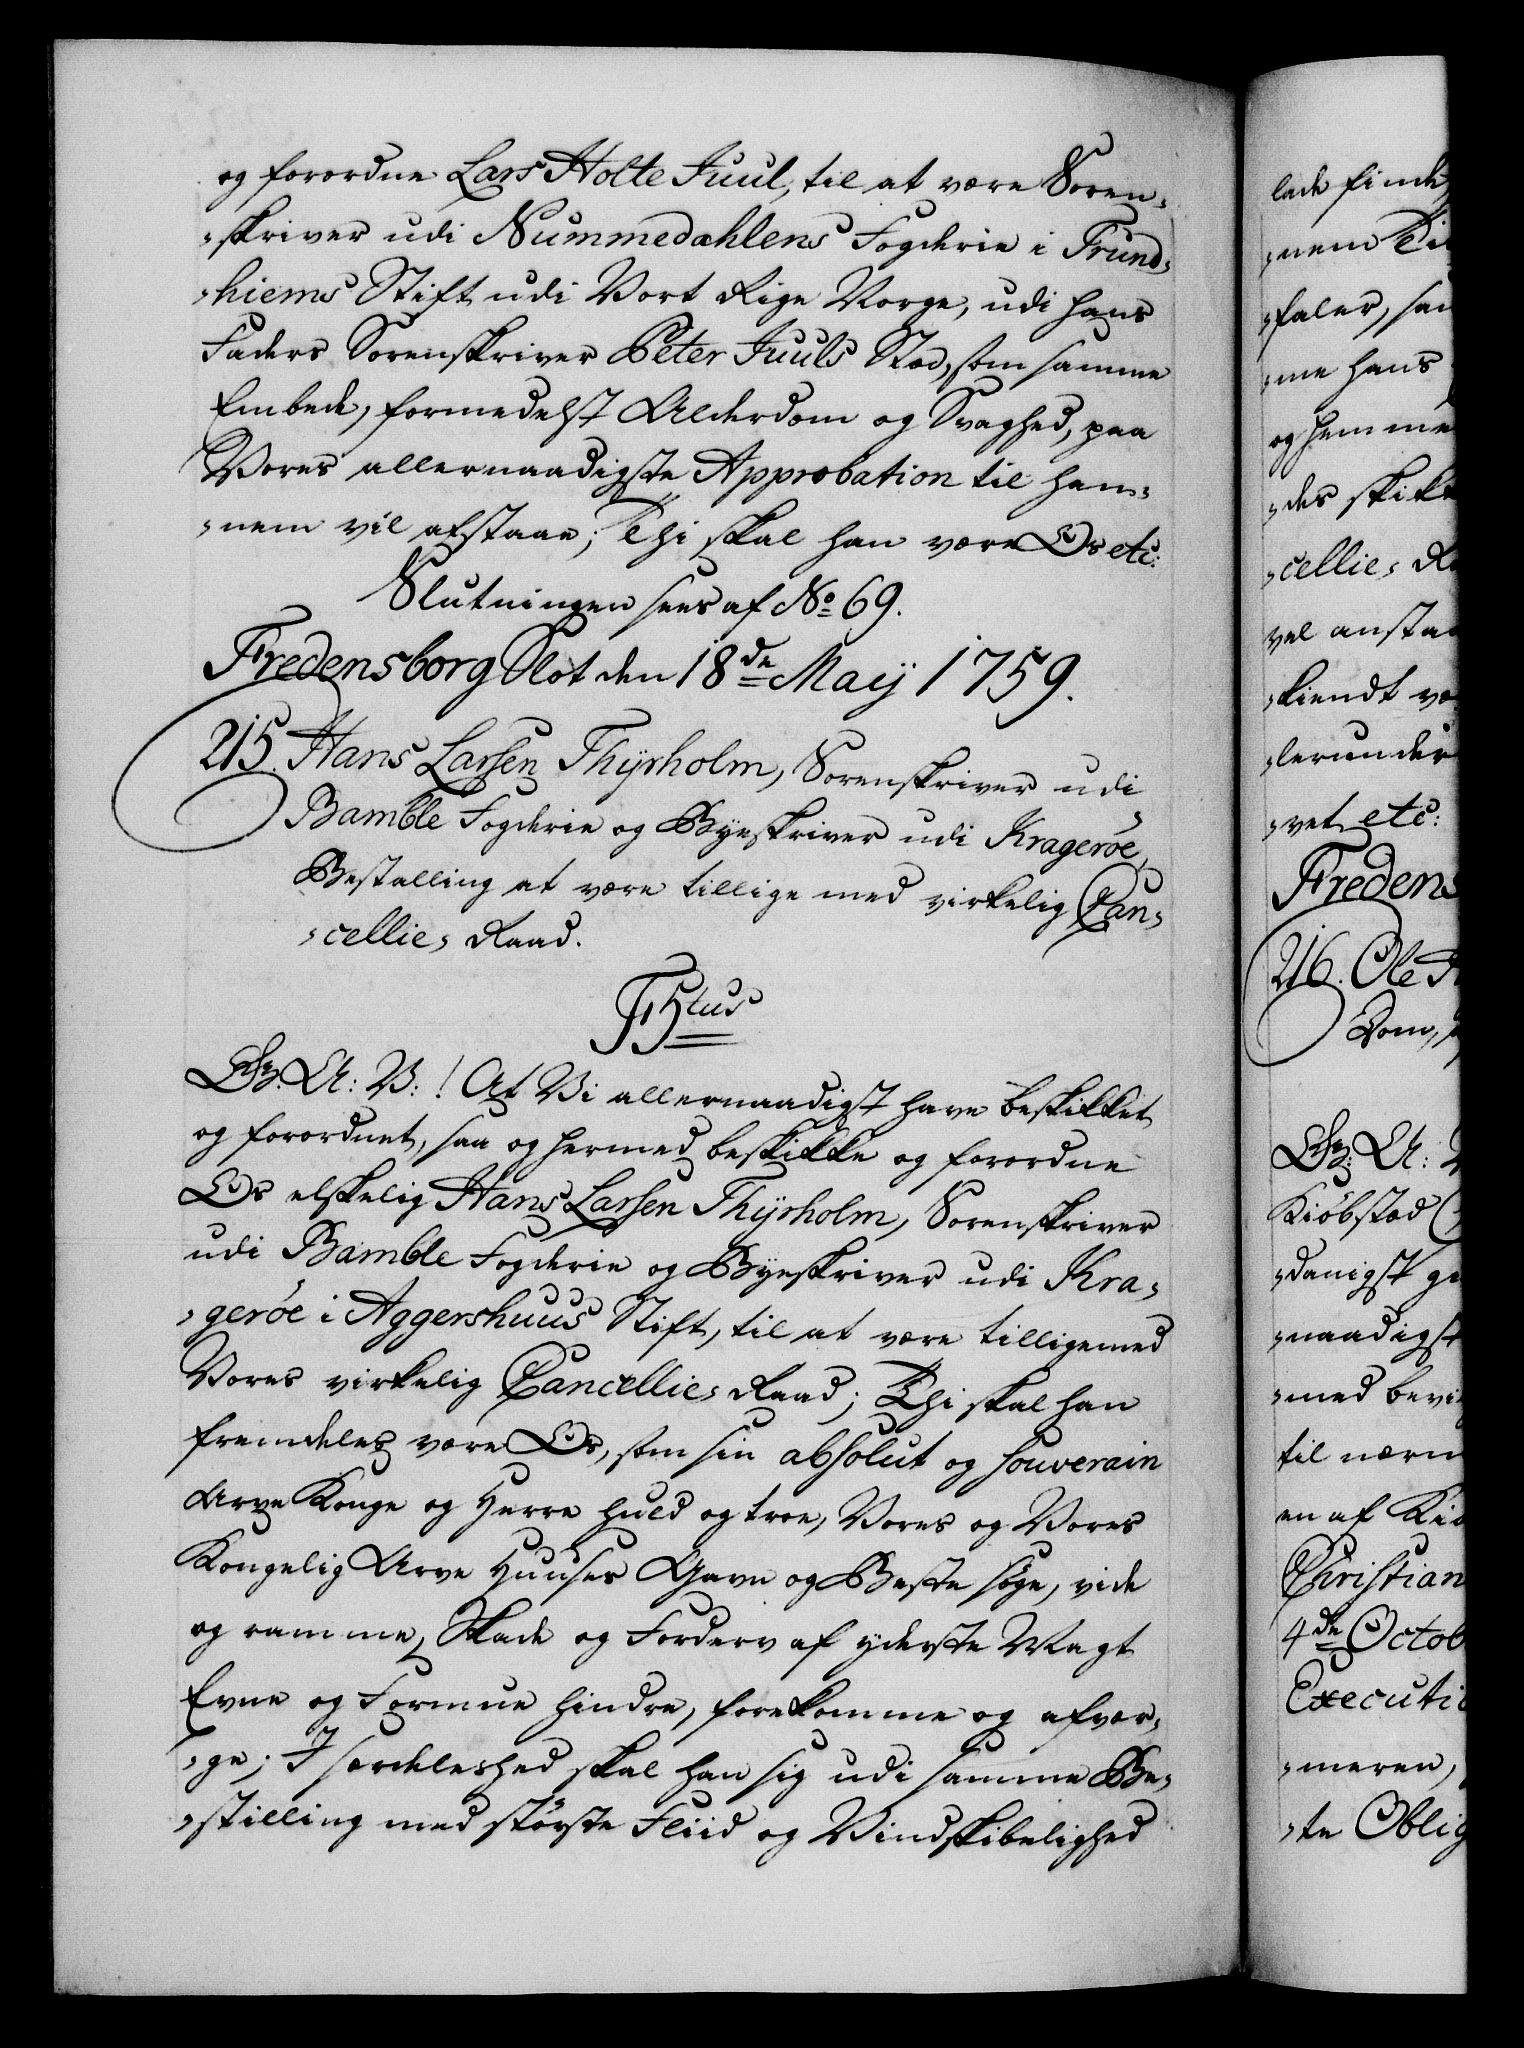 og forordne Lars Holte Juul, til at være Soren-
-skriver udi Nummedahlens Fogderie i Trund-
-hiems Stift udi Vort Rige Norge, udi hans
Faders Sorenskriver Peter Juuls Stæd, som samme
Embede, formedelst Alderdom og Svaghed, paa
Vores allernaadigste Approbation til ham-
-nem vil afstaae; Thi skal han være Os etc:
Slutningen sees af No 69.
Fredensborg Slot den 18de Maij 1759.
215. Hans Larsen Thyrholm, Sorenskriver udi
Bamble Fogderie og Byeskriver udi Krageröe,
Bestalling at være tillige med virkelig Can-
-cellie-Raad.
F5tus
Gr: A: V: ! At Vi allernaadigst have beskikket
og forordnet, saa og hermed beskikke og forordne
Os elskelig Hans Larsen Thyrholm, Sorenskriver
udi Bamble Fogderie og Byeskriver udi Kra-
-geröe i Aggershuus Stift, til at være tilligemed
Vores virkelig Cancellie-Raad; Thi skal han
fremdeles være Os, som sin absolut og souverain
Arve Konge og Herre huld og troe, Vores og Vores
Kongelig Arve Huuses Gavn og Beste søge, vide
og ramme, Skade og Forderv af yderste Magt
Evne og Formue hindre, forekomme og afvær-
-ge; I særdeleshed skal han sig udi samme Be-
-stilling med störste Fliid og Vindskibelighed
lade finde
-nem
-faler,
-me hans
og hemme
-des
-cellie-
vel
-kiendt
-lerunder
-vet etc:
Fredens
216. Ole
Dom,
Gr: A:
Kiöbstæd
-danigst
-naadigst
-med
til
en af
Christian
4de Octob
Executi
-meren,
-te Oblig